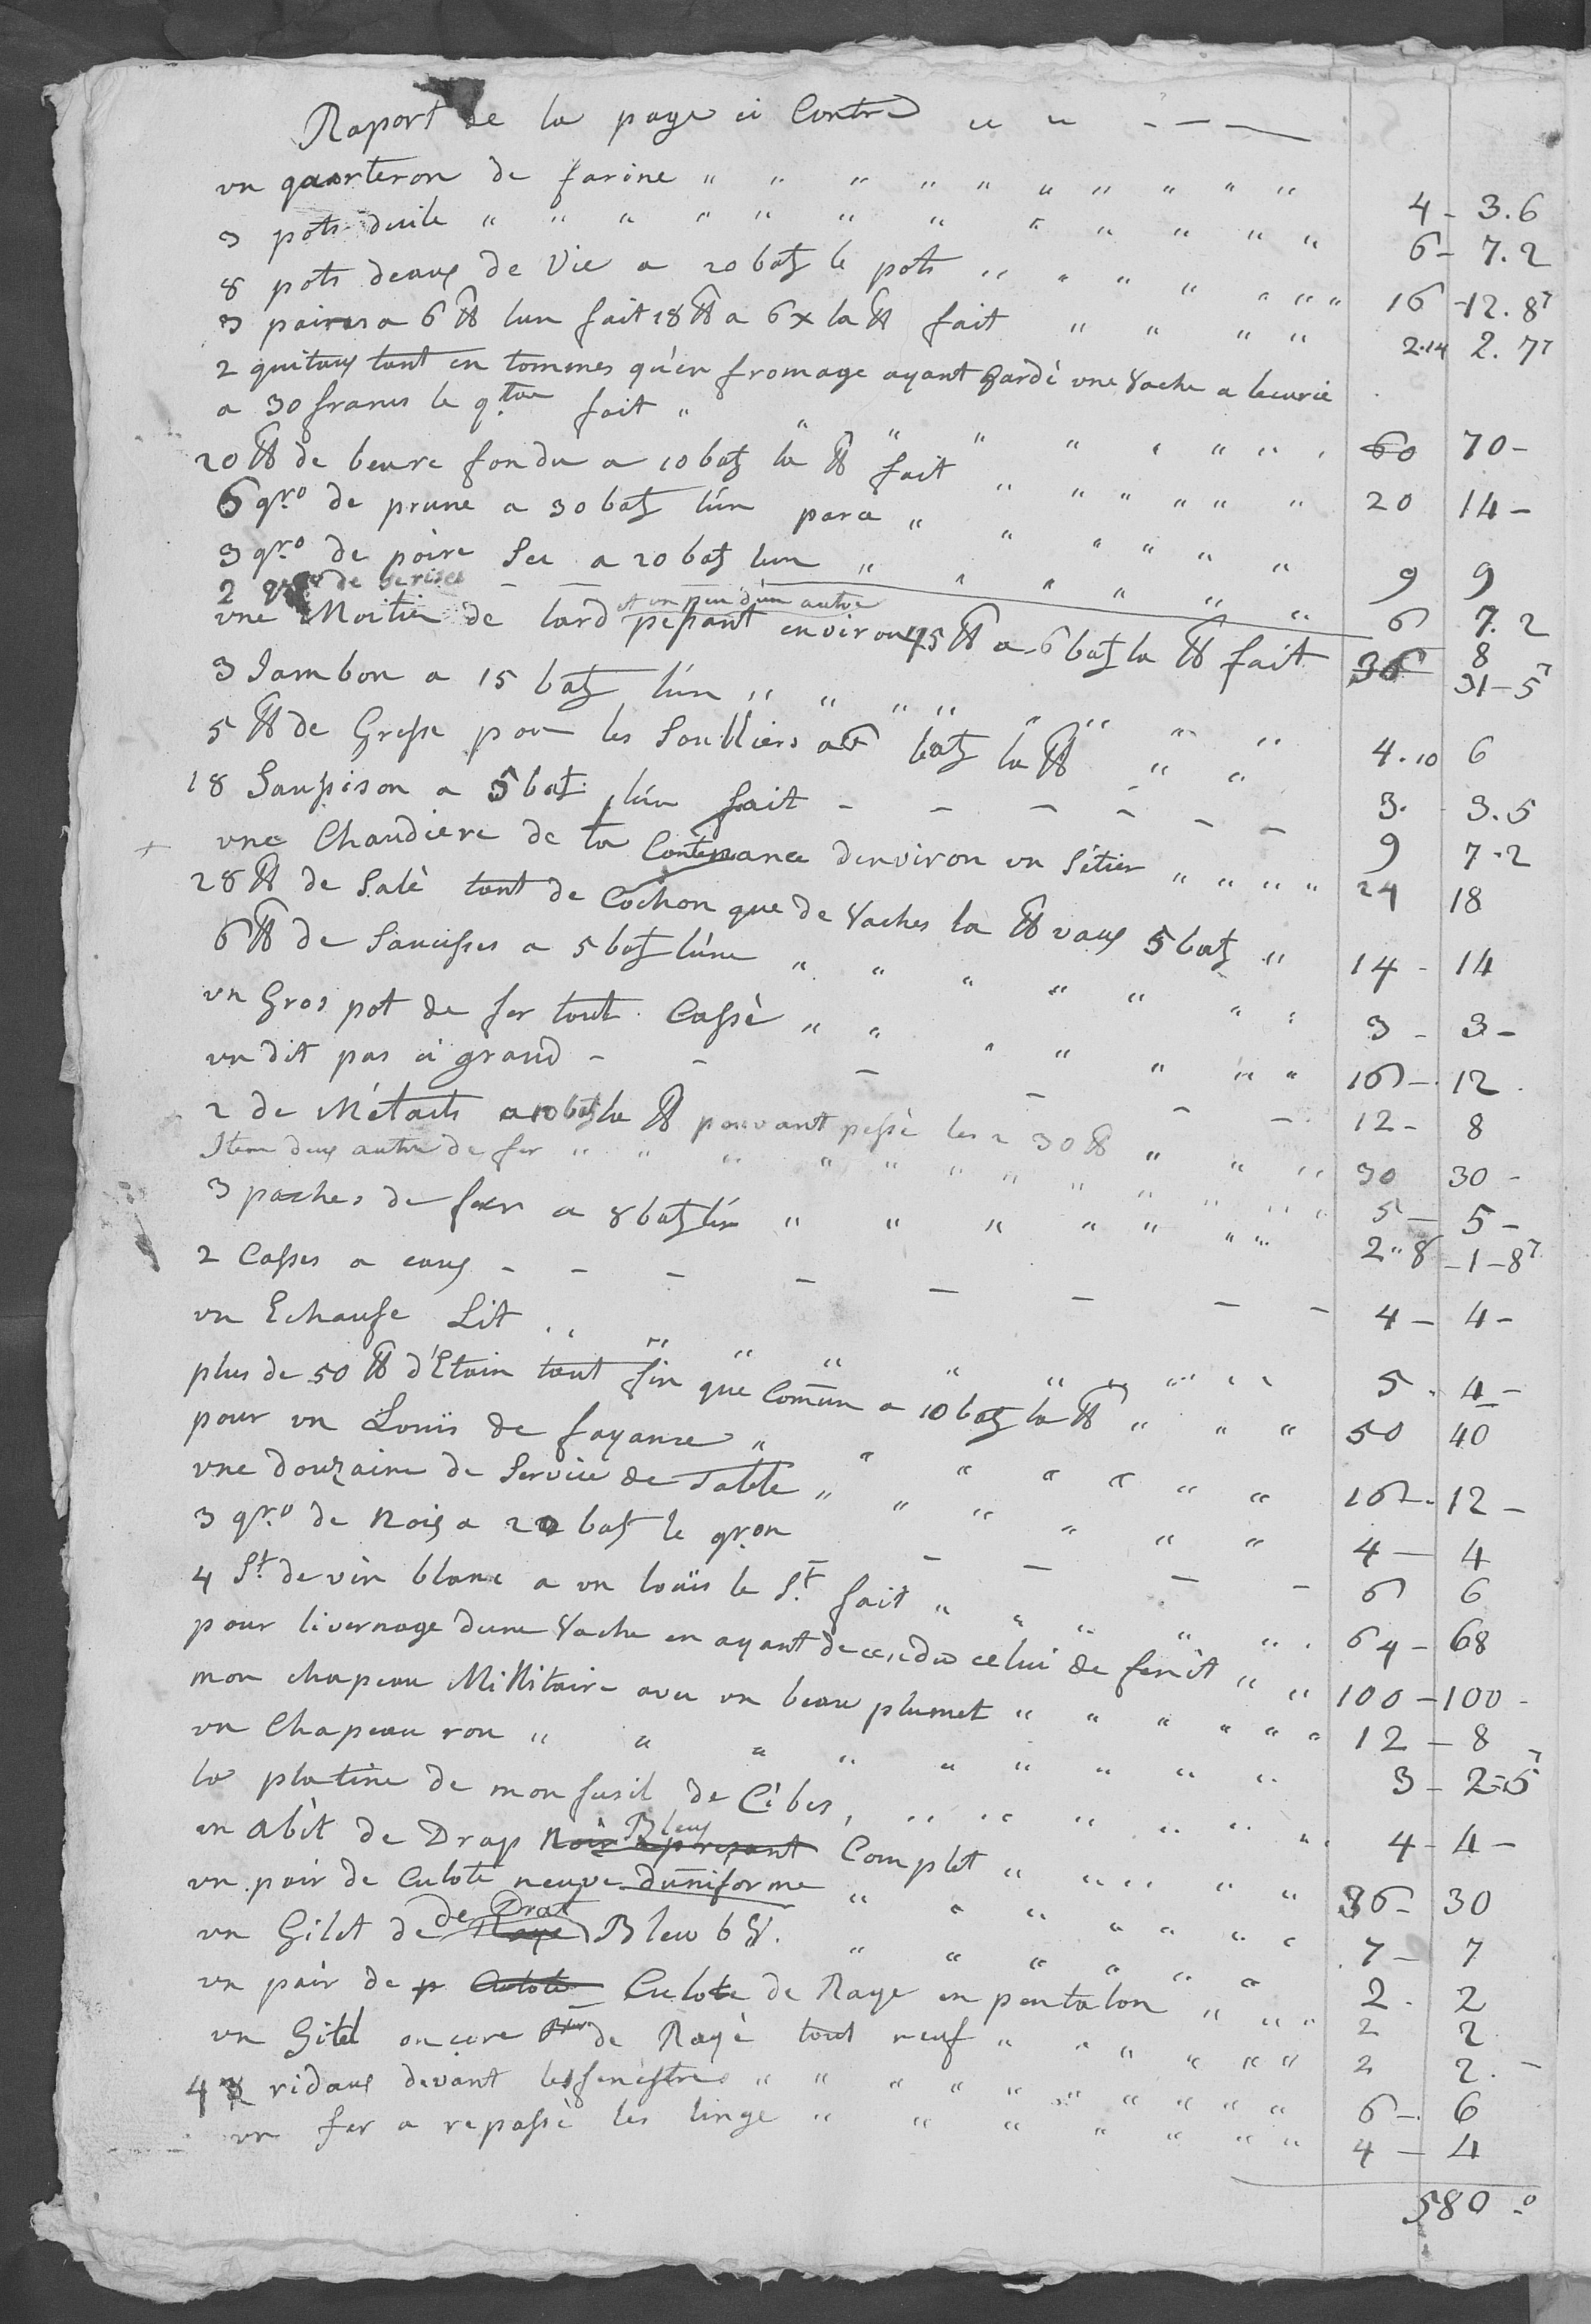 Raport de la page ci Contre " " - — —
un quarteron de farine " " " " " " " " " " 4 - 3.6
3 pots duile " " " " " " " " " " " " 6 - 7.2
8 pots deaux de Vie a 20 batz le pots " " " " " " " 16 - 12.8⁷
3 paires a 6 ℔ lun fait 18 ℔ a 6 x la ℔ fait " " " " 2.14 2.7⁷
2 quitaux tant en tommes qu'en fromage ayant gardè une Vache a lecurie
a 30 francs le q.tau fait " " " " " " " " " 60 70 -
20 ℔ de beure fondu a 10 batz la ℔ fait " " " " " " 20 14 -
6 qr.o de prune a 30 batz l'ún " " " " " " 9 9
3 qr.o de poire Sec a 20 batz lun " " " " " " 6 7.2
2 de serises — — — 8
une Moitier de lard et un peu d'ún autre pesant environ 75 ℔ a 6 batz la ℔ fait 36 31 - 5⁷
3 Jambon a 15 batz l'ún " " " " " " " " 4.10 6
5 ℔ de Gresse pour les Soulliers a 6 batz la ℔ " " 3. 3.5
18 Saupison a 5 batz l'ún fait - - - - - - 9 7.2
+ une Chaudiere de la Contenance denviron un Sétier " " " " 24 18
28 ℔ de Salè tant de Cochon que de Vaches la ℔ vaux 5 batz " 14 - 14
6 ℔ de Saucisses a 5 batz l'úne " " " " " " " 3 - 3 -
un Gros pot de fer tout Cassè " " " " " " " 16 - 12
un dit pas ci grand - - - - - - 12 - 8
2 de Métails a 10 batz la ℔ pouvant pessè les 2 30 ℔ " " " 30 30 -
Item deux autre de fer " " " " " " " " " " " " 5 - 5 -
3 poches de fer a 8 batz l'ún " " " " " " " 2 " 8 - 1 - 8⁷
2 Casses a eaux - - - - - - - - 4 - 4 -
un Echaufe Lit " " " " " " " " " 5 - 4 -
plus de 50 ℔ d'Etain tant fin que Comun a 10 batz la ℔ " " " 50 40
pour un Louïs de fayance " " " " " " " 16 - 12 -
une douzaine de Service de Table " " " " " " 4 — 4
3 qr.o de noix a 20 batz le qr.on - - - - 6 6
4 St. de vin blanc a un louïs le St. fait " " " " " " 64 - 68
pour livernage dune Vache en ayant decendu celui de fenît " " 100 - 100 -
mon chapeau Millitaire avec un beau plumet " " " " " " 12 - 8
un Chapeau ron " " " " " " " " " 3 - 2 = 5⁷
la platine de mon fusil de Cibes, " " " " " " 4 - 4 -
un abit de Drap Noir Bleux Complet " " " " " " 36 - 30
un pair de Culote neuve d'uniforme " " " " " " " 7 - 7
un Gilet de Raye de Drat Bleu " " " " " " 2 - 2
un pair de p Culote Culote de Raye en pentalon " " " " 2 2
un Gilet encore de Rayè tout neuf " " " " " " 2 2. -
4 ridaux devant les fenestres " " " " " " " " " " 6 - 6
un fer a repassè les linge " " " " " " " 4 - 4
580 - 0